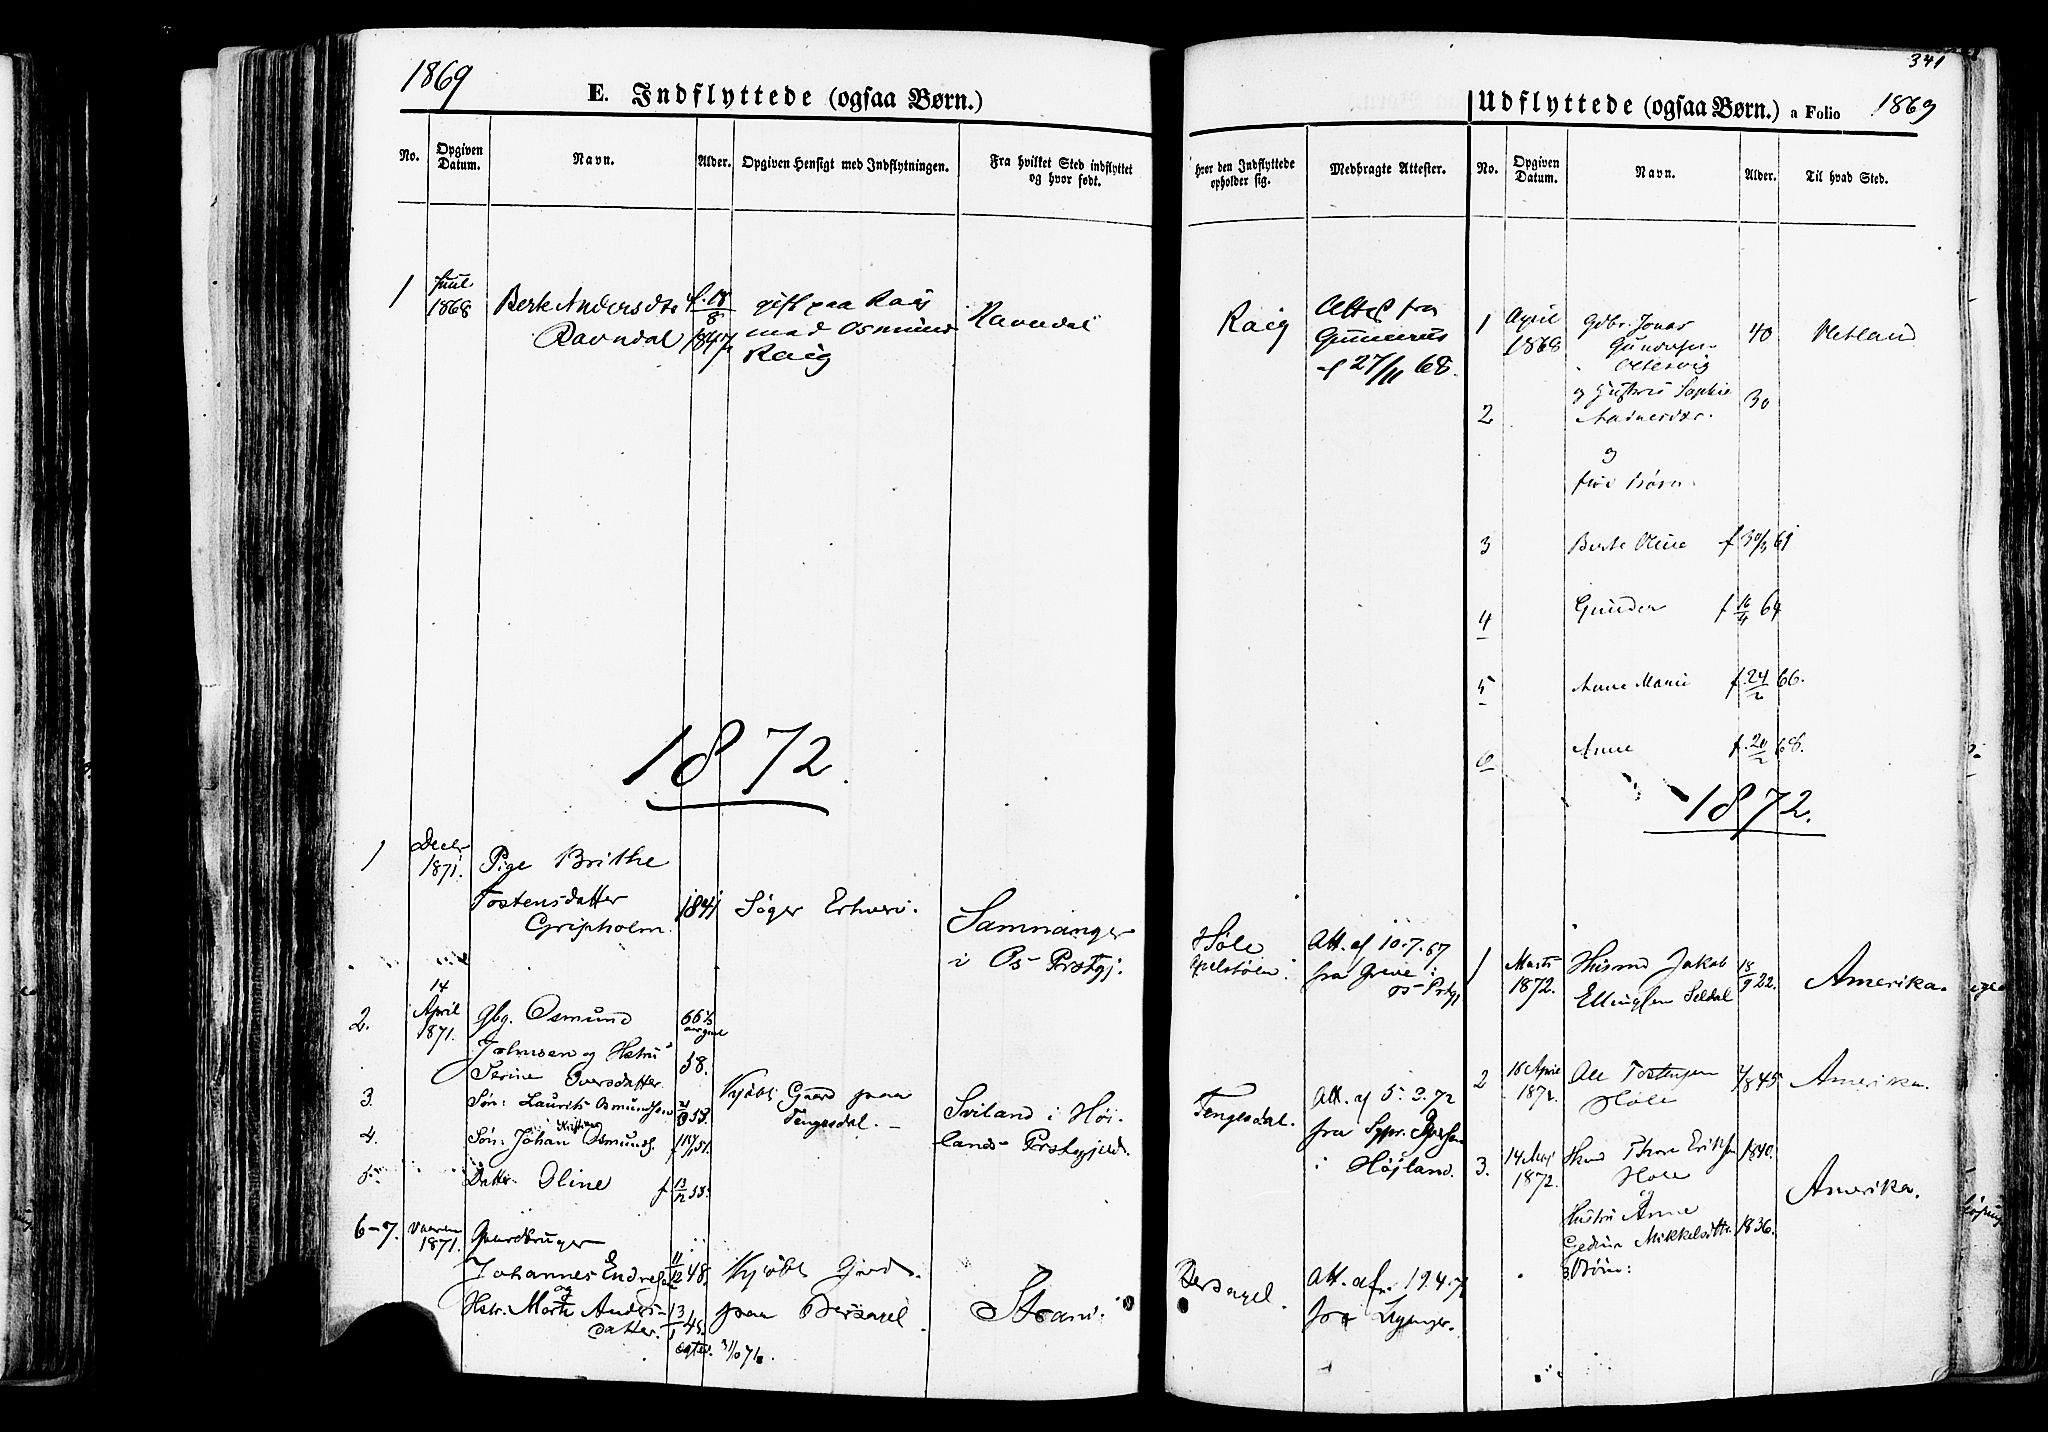 1869
E. Indflyttede (ogsaa Børn.)
No.
Opgiven Datum.
Navn.
Alder.
Opgiven Hensigt med Indflytningen.
Fra hvilket Sted indflyttet
og hvor født.
1
1868
Berte Andersdtr
Ravndal
f. 18/8
1847
gift paa Raig
med Osmund
Raig
Ravndal
1872.
1
Decbr
1871.
Pige Brithe
Tostensdatter
Gripholm.
1841
Søger Erhverv.
Samnanger
i Os Præstgj.
2.
14
April
1871.
Gbg. Osmund
Johnsen og Hstru
Serine Sversdatter
66½
58.
Kjøbt Gaard paa
Tengesdal.
Sviland i Høi-
lands Præstegjeld.
3.
Søn: Laurits Osmundsen
53.
4.
Søn: Johan Osmunds.
51.
5
Datter Oline
f 13/12 55.
6-7.
Vaaren
1871.
Gaardbruger
Johannes Endresen
og
Hstr. Marte Anders-
datter.
11/12 48.
13/1 45.
Kjøbt Gaard
paa Bersagel
Strand.
341
Udflyttede (ogsaa Børn.) a Folio
1869
hvor den Indflyttede
opholder sig.
Medbragte Attester.
No.
Opgiven
Datum.
Navn.
Alder.
Til hvad Sted.
Raig
Attest fra
Gunnerus
af 27/11 68.
1
April
1868
Gdbr. Jonas
Gundersen
40
Hetland
2
og Hustru Sophie
30
og
fire Børn.
3
Berte Oline f 30/3 61
4
Gunder f 16/4 64
5
Anne Marie f. 24/2 66.
6
Anne f. 20/2 68.
1872.
Høle
Att. af 10.7.67
fra
Os Prstgj
1
Marts
1872.
Husmd Jakob
Ellingsen Seldal
18/9 22.
Amerika.
2
16 April
1872.
Ole Tostensen
Høle
45
Amerika.
Tengesdal.
Att. af 5.3.72
fra
i Høiland.
3.
14 Maj
1872.
Thore Eriksen
Hole
1840.
og
Hustru Anne
Gedine Mikkelsdtr
1836.
3 Børn:
Amerika.
Bersagel.
Att. af 19.4.71
fra